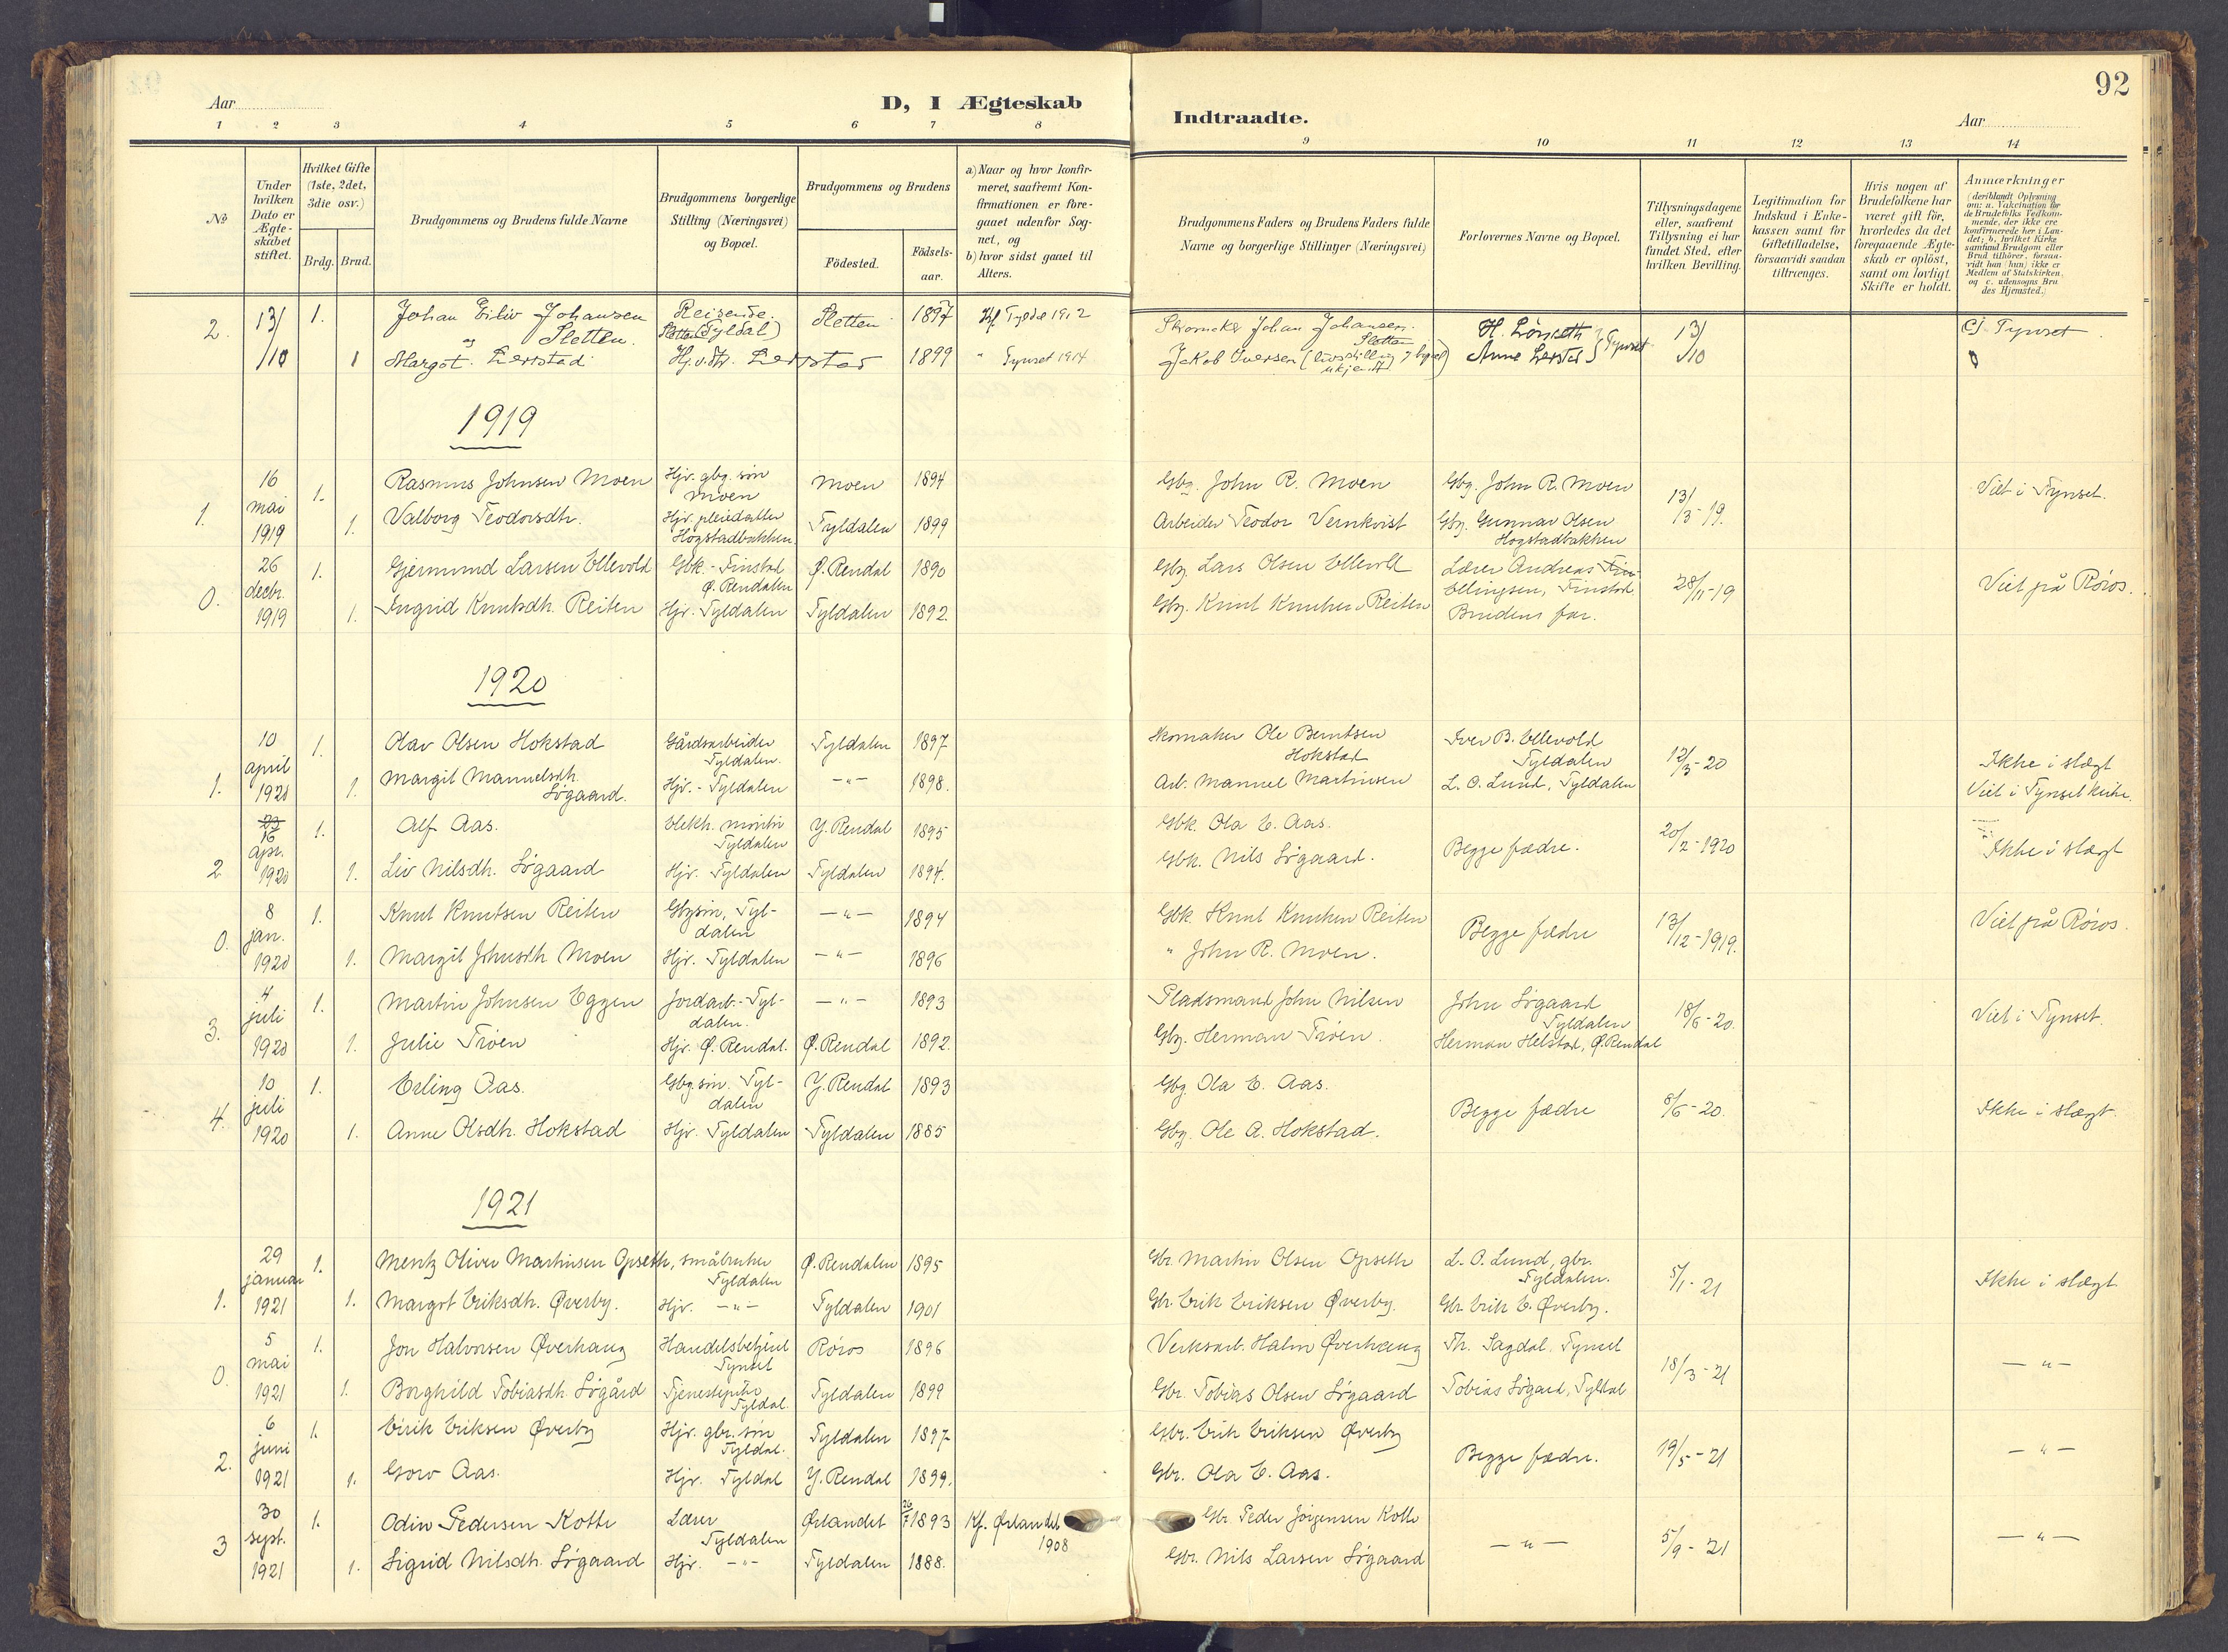 92
Aar
D, I Ægteskab
Indtraadte.
Aar
1 2 3 4 5 6 7 8 9 10 11 12 13 14
№
Under
hvilken
Dato er
Ægte-
skabet
stiftet.
Hvilket Gifte
(1ste, 2det,
3die osv.)
Brdg. Brud.
Brudgommens og Brudens fulde Navne
Brudgommens borgerlige
Stilling (Næringsvei)
og Bopæl.
Brudgommens og Brudens
Födested.
Födsels-
aar.
a) Naar og hvor konfir-
meret, saafremt Kon-
firmationen er fore-
gaaet udenfor Sog-
net, og
b) hvor sidst gaaet til
Alters.
Brudgommens Faders og Brudens Faders fulde
Navne og borgerlige Stillinger (Næringsvei)
Forlovernes Navne og Bopæl.
Tillysningsdagene
eller, saafremt
Tillysning ei har
fundet Sted, efter
hvilken Bevilling.
Legitimation for
Indskud i Enke-
kassen samt for
Giftetilladelse,
forsaavidt saadan
tiltrænges.
Hvis nogen af
Brudefolkene har
været gift för,
hvorledes da det
foregaaende Ægte-
skab er oplöst,
samt om lovligt
Skifte er holdt.
Anmærkninger
(deriblandt Oplysning
om: a. Vakcination for
de Brudefolks Vedkom-
mende, der ikke ere
konfirmerede her i Lan-
det; b. hvilket Kirke
samfund Brudgom eller
Brud tilhörer, forsaa-
vidt han (hun) ikke er
Medlem af Statskirken,
og c. udensogns Bru
des Hjemsted.)
2. 13/10 1. Johan Eiliv Johansen Sletten. Reisende. Sletten (Tyldal) Sletten 1897 Kf Tyldal 1912 Skomaker Johan Johansen Sletten H. Lönseth Tynset 13/10 Tynset
og
1 Margot 1899 " Tynset 1914 Jakob Iversen (livsstilling og bopæl ukjendt) Anne
1919
1. 16 mai 1919 1. Rasmus Johnsen Moen Hjv. gbg. søn Moen Moen 1894 Gbg. John R. Moen Gbg. John R. Moen 13/3-19. Viet i Tynset.
1. Valborg Teodorsdtr. Hjv. pleiedatter Hogstadbakken Tyldalen 1899 Arbeider Teodor Vernkvist Gbg. Gunnar Olsen Hogstadbakken
0. 26 decbr. 1919 1. Gjermund Larsen Ellevold Gbk. - Finstad Ø. Rendalen Ø. Rendal 1890 Gbg. Lars Olsen Ellevold Lærer Andreas Ellingsen, Finstad 28/11-19 Viet på Røros.
1. Ingrid Knutsdtr. Reiten Hjv. Tyldalen Tyldalen 1892. Gbg. Knut Knutsen Reiten Brudens far.
1920
1. 10 april 1920 1. Olav Olsen Hokstad Gårdsarbeider Tyldalen. Tyldalen 1897 Skomaker Ole Berntsen Hokstad Iver B. Ellevold Tyldalen 12/3-20 Ikke i slægt
1. Margit Manuelsdh. Søgaard. Hjv. - Tyldalen -"- 1898. Arb. Manuel Martinsen L. O. Lund, Tyldalen Viet i Tynset kirke.
2 16 apr. 1920 1. Alf Aas. Elektr. montør Tyldalen Y. Rendal 1895 Gbk. Ola E. Aas. Begge fædre. 20/2-1920 Ikke i slægt
1. Liv Nilsdh. Søgaard Hjv. Tyldalen Tyldalen 1894. Gbk. Nils Søgaard.
0. 8 jan. 1920 1. Knut Knutsen Reiten Gbgsøn, Tyl-dalen -"- 1894 Gbk. Knut Knutsen Reiten Begge fædre 13/12-1919. Viet på Røros.
1. Margit Johnsdh. Moen Hjv. Tyldalen -"- 1896 " John R. Moen.
3. 4 juli 1920 1. Martin Johnsen Eggen Jordarb.-Tyl-dalen. -"- 1893 Pladsmand John Nilsen John Søgaard Tyldalen 18/6-20. Viet i Tynset.
1. Julie Trøen Hjv. Ø. Rendal. Ø. Rendal 1892. Gbg. Herman Trøen. Herman Helstad, Ø. Rendal
4. 10 juli 1920 1. Erling Aas. Gbg.søn. Tyl-dalen Y. Rendal 1893 Gbg. Ola E. Aas. Begge fædre 8/6-20. Ikke i slægt.
1. Anne Olsdh. Hokstad Hjv. Tyldalen Tyldalen 1885 Gbg. Ole A. Hokstad.
1921
1. 29 januar 1921 1. Mentz Oliver Martinsen Opseth, småbruker Tyldalen Ø. Rendalen 1895 Gbr. Martin Olsen Opseth L. O. Lund, gbr. Tyldalen. 5/1-21 Ikke i slægt
1. Margot Eriksdh. Øverby. Hjv. -"- Tyldalen 1901 Gbr. Erik Eriksen Øverby. Gbr. Erik E. Øverby.
0. 5 mai 1921 1. Jon Halvorsen Øverhaug Handelsbetjent Tynset Røros 1896 Verksarb. Halvor Øverhaug Th. Sagdal. Tynset 18/3-21 -"-
1. Borghild Tobiasdh. Søgård Tjenestepike Tyldal. Tyldalen 1899 Gbr. Tobias Olsen Søgaard Tobias Søgaard, Tyldal
2. 6 juni 1921 1. Eirik Eriksen Øverby Hjv. gbr. søn Tyldal. Tyldalen 1897 Gbr. Erik Eriksen Øverby Begge fædre. 19/5-21 -"-
1. Goro Aas. Hjv. Tyldal Y. Rendal 1899. Gbr. Ola E. Aas.
3 30 sept. 1921 1. Odin Pedersen Kotte Lærer Tyldalen Ørlandet 26/7 1893 Kf. Ørlandet 1908 Gbr. Peder Jørgensen Kotte -"- 5/9-21 -"-
1. Sigrid Nilsdh. Søgaard Hjv. -"- Tyldalen 1888. Gbr. Nils Larsen Søgaard